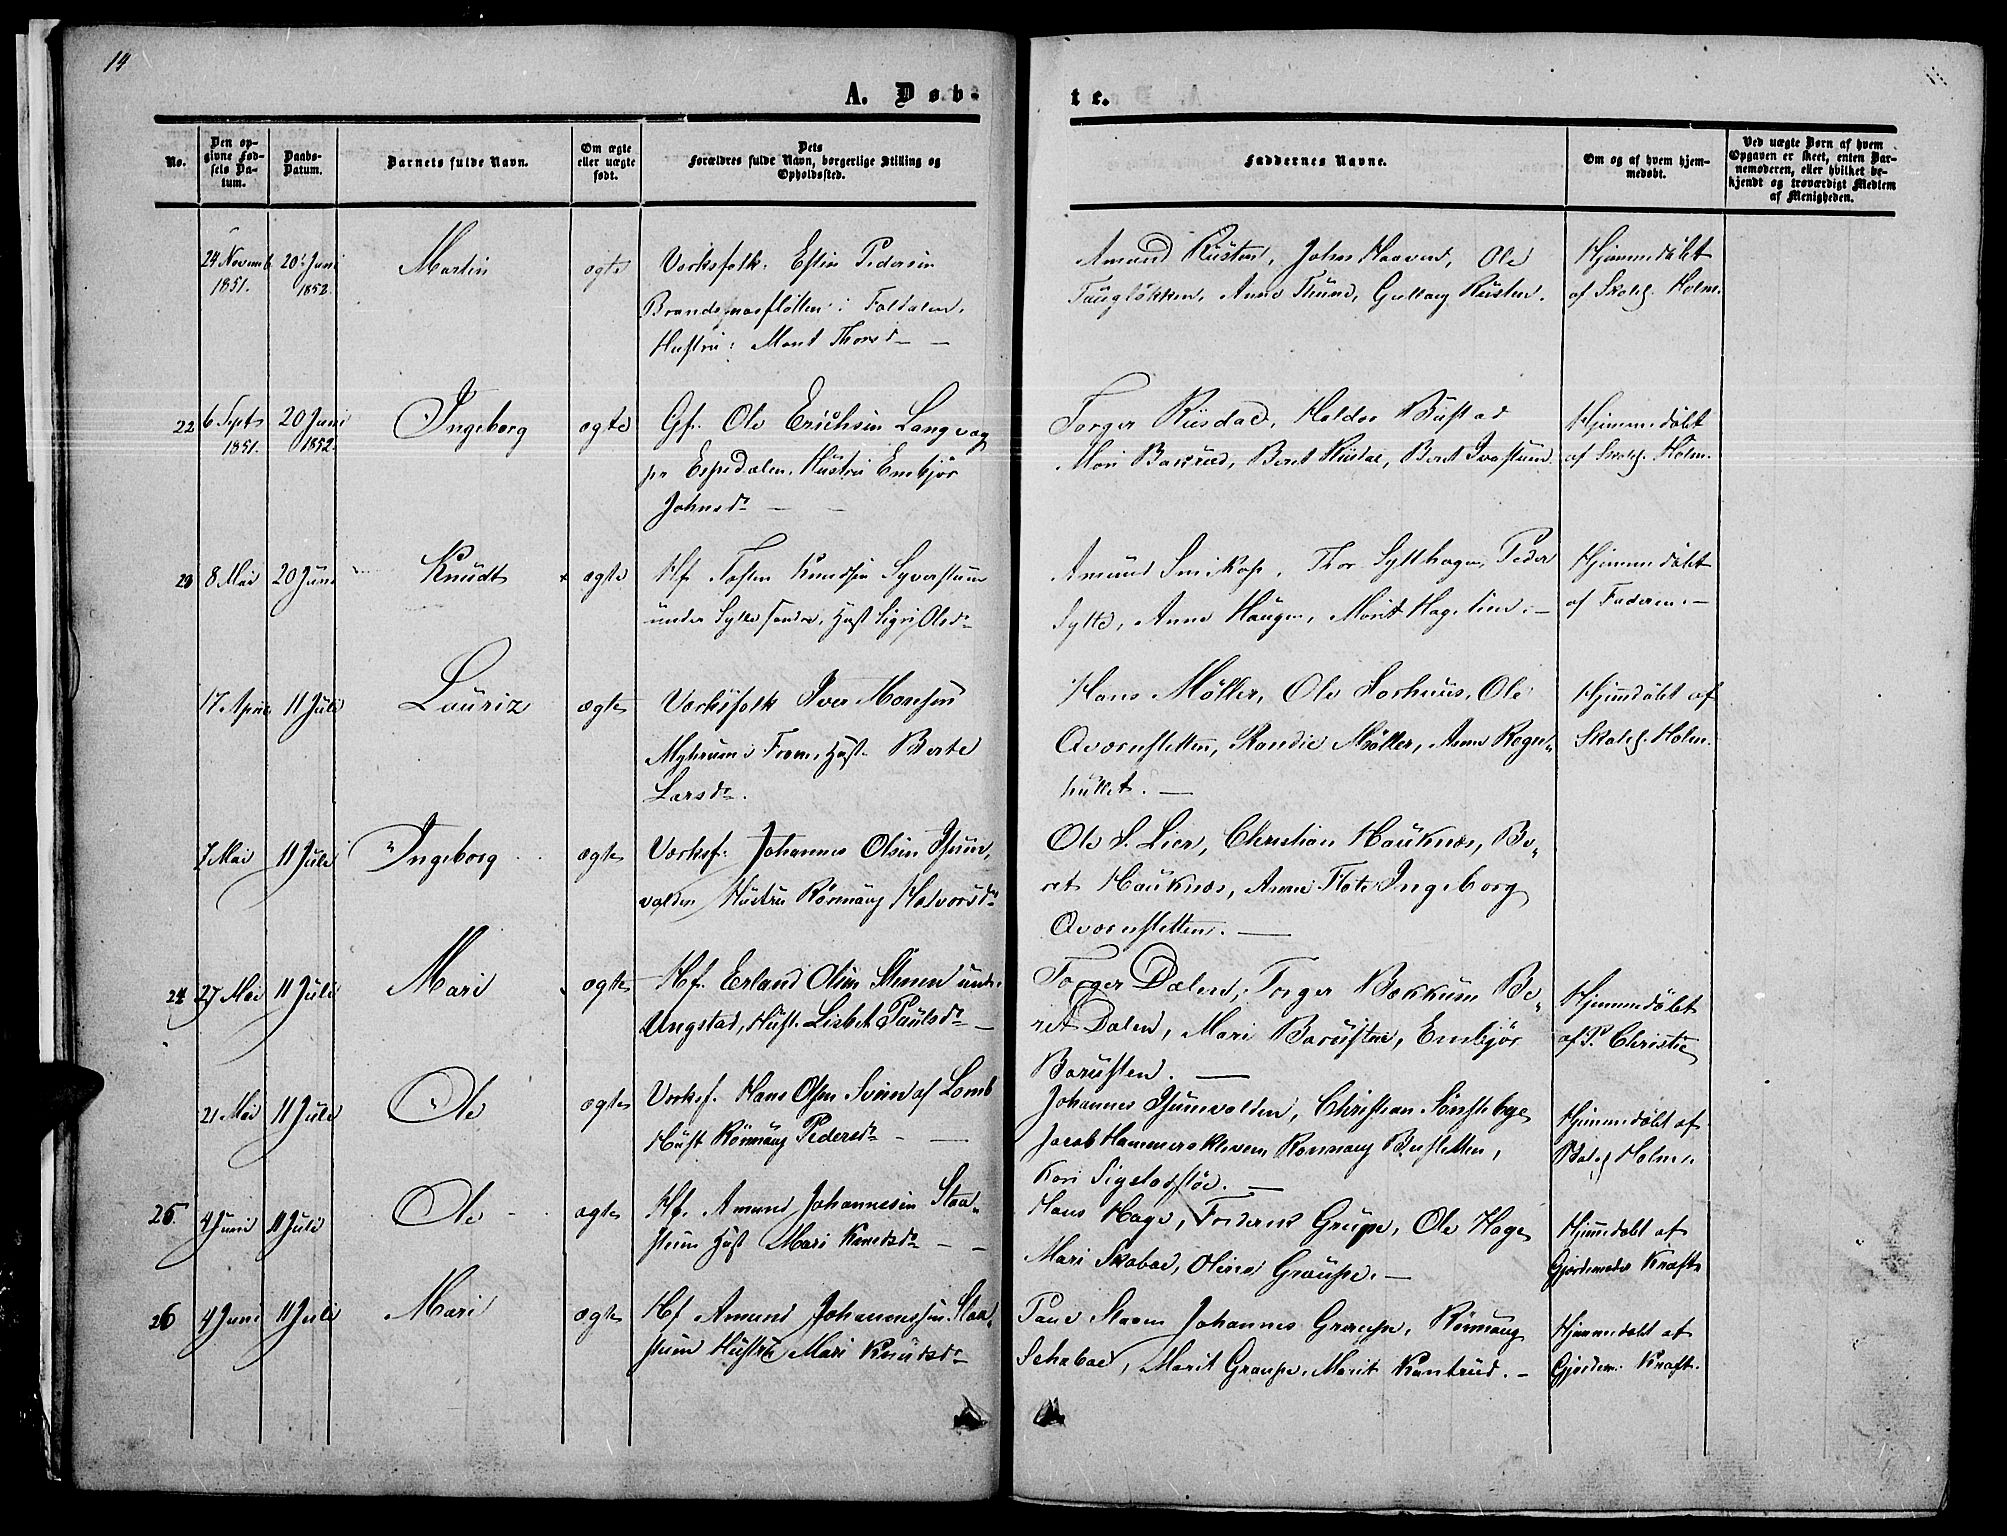 14
A. Døb-
te.
No.
Den op-
givne Fød-
sels Da-
tum.
Daabs-
Datum.
Barnets fulde Navn.
Om ægte
eller uægte
født.
Dets
Forældres fulde Navn, borgerlige Stilling og
Opholdssted.
Faddernes Navne.
Om og af hvem hjem-
medøbt.
Ved uægte Børn af hvem
Opgaven er skeet, enten Bar-
nemoderen, eller hvilket be-
kjendt og troværdigt Medlem
af Menigheden.
24 Novemb 20 Juni Martin ægte Værksfolk: Estin Pedersen
1851. 1852.
i Foldalen,
Hustru: Marit Thorsd
Amund Rusten, John Haaverd, Ole
Anne Thune, Gullaug Rusten.
Hjemmedøbt
af Skolel. Holm.
22 6 Sept 20 Juni Ingeborg ægte Gf. Ole Erichsen Langvag
1851. 1852.
Espedalen, Hustru Embjør
Johnsdr
Torger Riisdal, Haldor Bustad
Mari Bakrud, Berit Riisdal, Berit
Hjemmedøbt
af Skolel. Holm.
23 8 Mai 20 Juni Knudt ægte Hf. Tosten Knudsen Syverstuen
under Sylte søndre, Hust. Sigri Olsdr
Amund Smikop, Thor Sylthagen, Peder
Sylte, Anne Haugen, Marit
Hjemmedøbt
af Faderen.
17 April 11 Juli Lauriz ægte Værksfolk Iver Monsen
Hust. Berte
Larsdr.
Hans Møller, Ole Horhuus, Ole
Qværnsletten, Møller, Anne Rogn-
hullet.
Hjemdøbt af
Skolel. Holm.
7 Mai 11 Juli Ingeborg ægte Værksf. Johannes Olsen
Hustru Rønnaug Halvorsdr
Ole S. Lier, Christian Hauknæs, Be-
ret Hauknæs, Anne Ingeborg
Qværnsletten.
24 27 Mai 11 Juli Mari ægte Hf. Erland Olsen Steinen under
Ungstad, Hust. Lisbet Paulsdr
Torger Dalen, Torger Bækkum Be-
ret Dalen, Mari Barusten, Embjør
Barusten.
Hjemmedøbt
af P. Christie
21 Mai 11 Juli Ole ægte Værksf. Hans Olsen Sveen af Lomb
Hust Rønnaug Pedersdr
Johannes Christian Sønsteby
Jacob Hammerskleven Rønnaug
Kari
Hjemmedøbt af
Skolel Holm
25 4 Juni 11 Juli Ole ægte Hf. Amund Johannesen Staa-
stuen Hust Mari Knudsdr
Hans Hage, Graupe, Ole Hage
Mari Skabae, Olina Graupe.
Hjemdøbt af
Gjordemoder Kraft
26 4 Juni 11 Juli Mari ægte Hf Amund Johannessen Staa-
stuen Hustru Mari Knudsdr
Staaen Johannes Graupe, Rønnaug
Schabae, Marit Graupe, Marit Kantrud.
Hjemmedøbt af
Gjordem. Kraft.